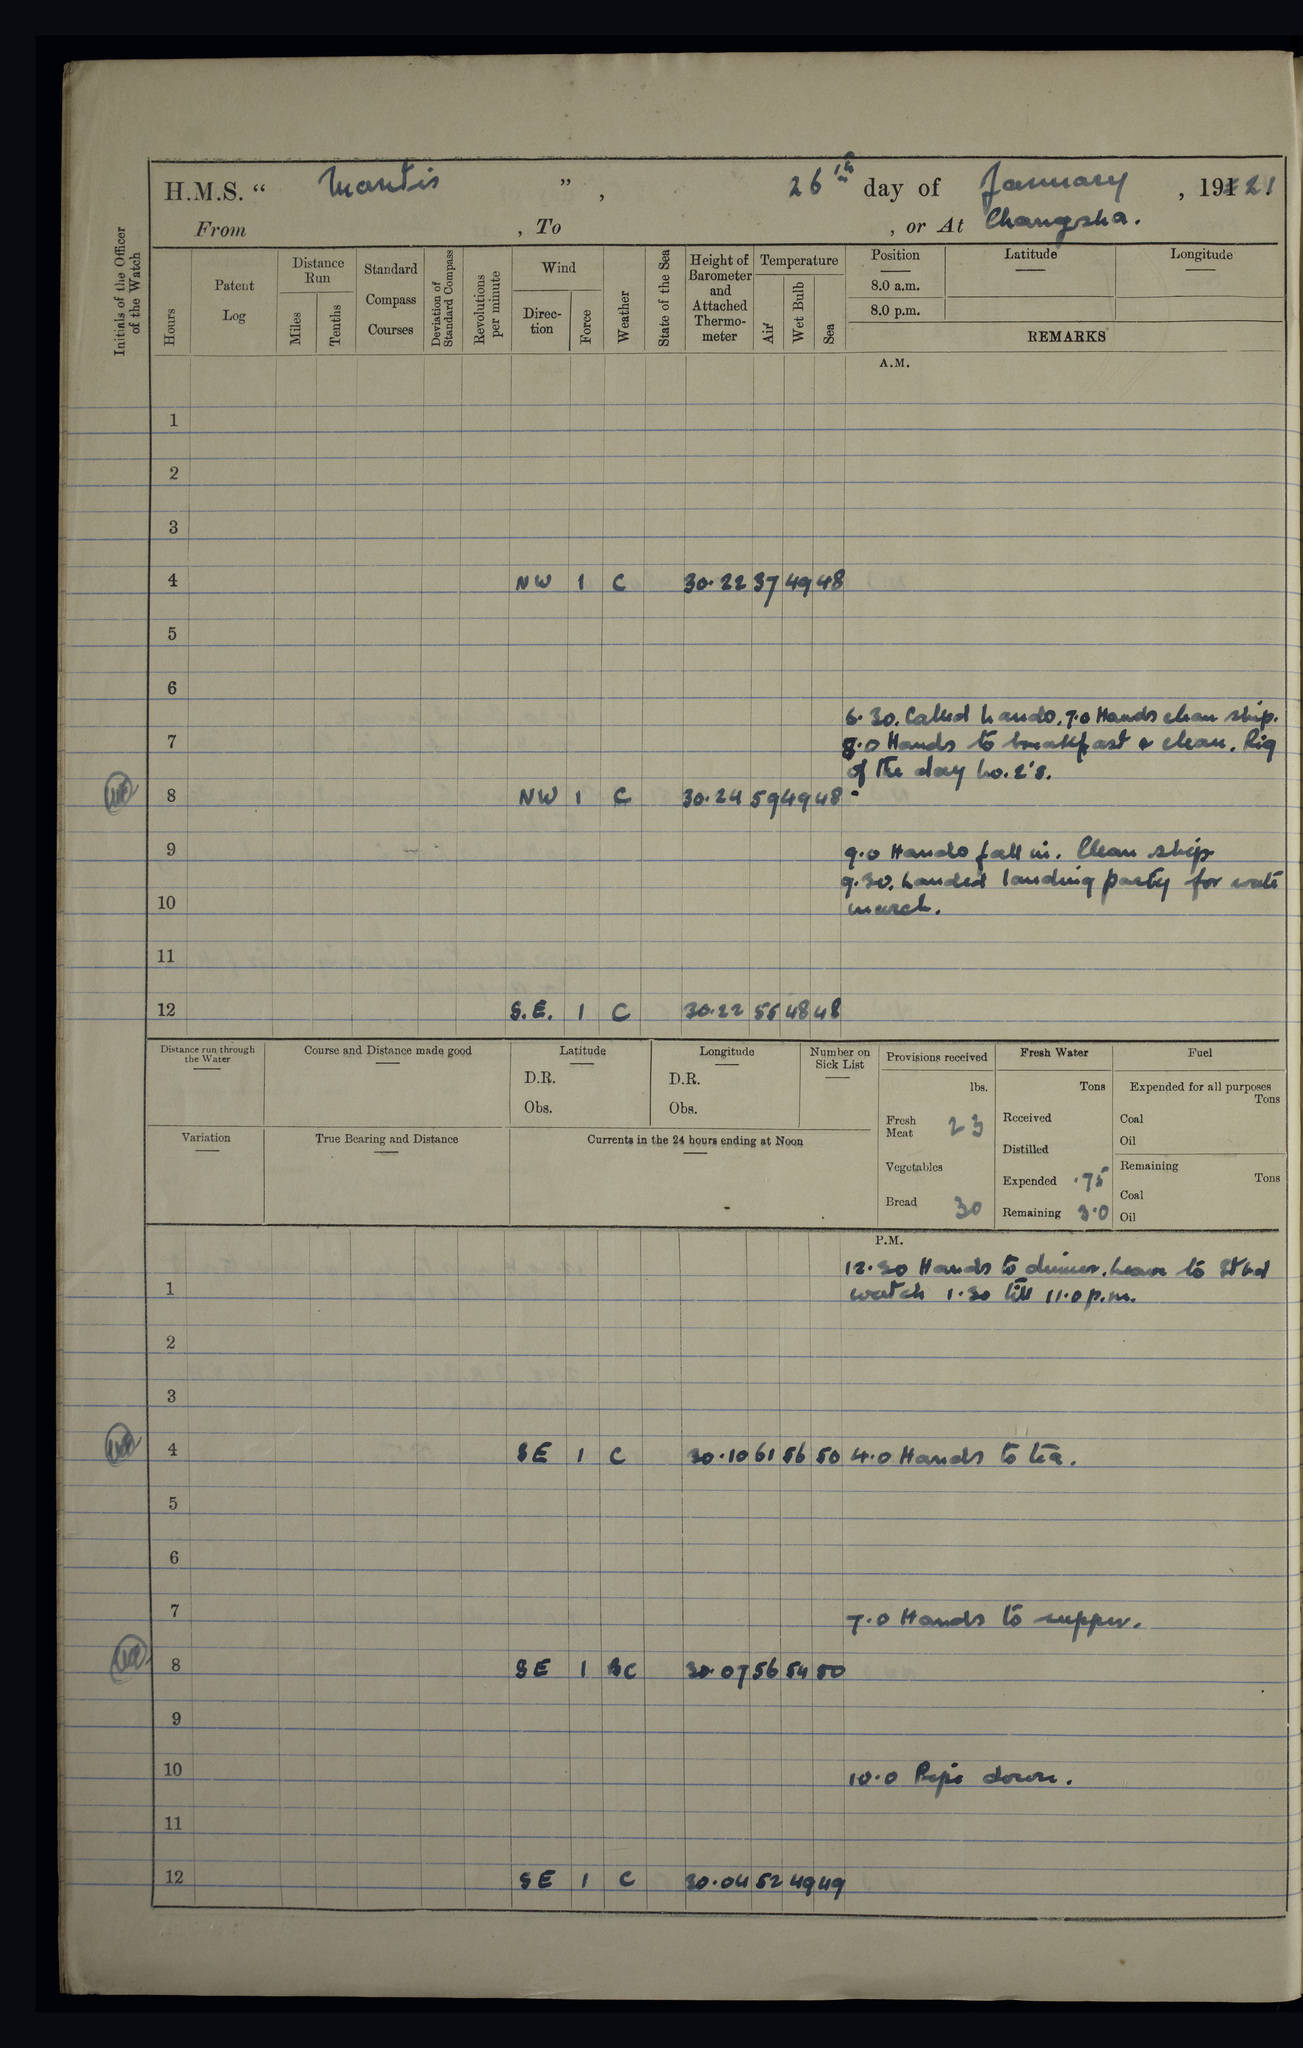 H.M.S. “ Mantis ” , 26th day of January , 1921
From , To , or At Changsha.
Initials of the Officer of the Watch
Hours
Patent Log
Distance Run
Miles
Tenths
Standard Compass Courses
Deviation of Standard Compass
Revolutions per minute
Wind
Direc-tion
Force
Weather
State of the Sea
Height of Barometer and Attached Thermo-meter
Temperature
Air
Wet Bulb
Sea
Position
8.0 a.m.
8.0 p.m.
Latitude
Longitude
REMARKS
A.M.
1
2
3
4 NW 1 C 30.22 37 49 48
5
6
6.30. Called hands. 7.0 Hands clean ship.
7 8.0 Hands to breakfast & clean. Rig
of the day No. 2's.
8 NW 1 C 30.24 59 49 48
9 9.0 Hands fall in. Clean ship
9.30. Landed landing party for
10 march.
11
12 S.E. 1 C 30.22 55 48 48
Distance run through the Water
Course and Distance made good
Latitude
D.R.
Obs.
Longitude
D.R.
Obs.
Number on Sick List
Provisions received
lbs.
Fresh Meat 23
Vegetables
Bread 30
Fresh Water
Tons
Received
Distilled
Expended .75
Remaining 3.0
Fuel
Expended for all purposes
Tons
Coal
Oil
Remaining
Tons
Coal
Oil
Variation
True Bearing and Distance
Currents in the 24 hours ending at Noon
P.M.
12.30 Hands to dinner. Leave to Stbd
1 watch 1.30 till 11.0 p.m.
2
3
4 SE 1 C 30.10 61 56 50 4.0 Hands to tea.
5
6
7 7.0 Hands to supper.
8 SE 1 BC 30.07 56 54 50
9
10 10.0 Pipe down.
11
12 SE 1 C 30.04 52 49 49